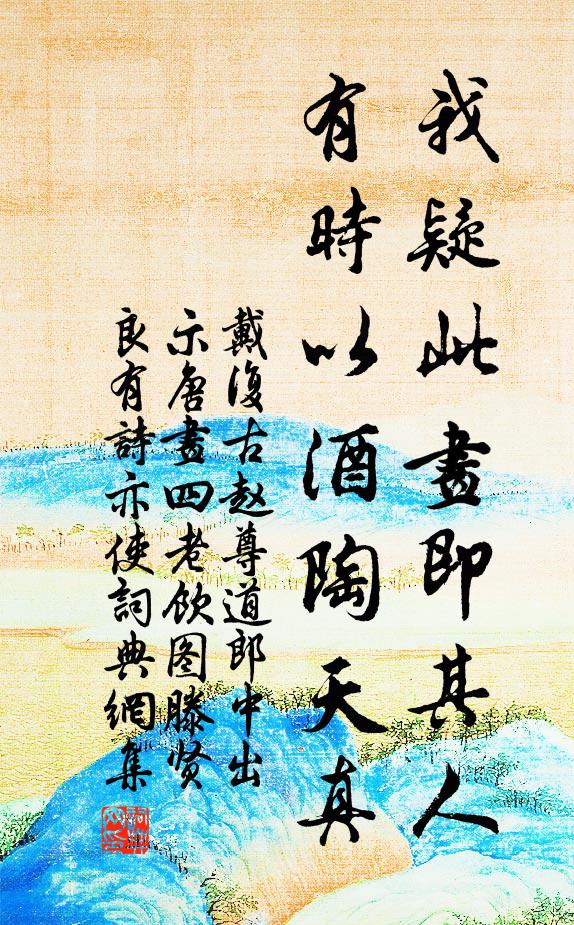 我疑此畫即其人
有時以酒陶天真
戴復古赵尊道郎中出
示唐畫四老飲图滕贤
良有詩亦使詞典網集